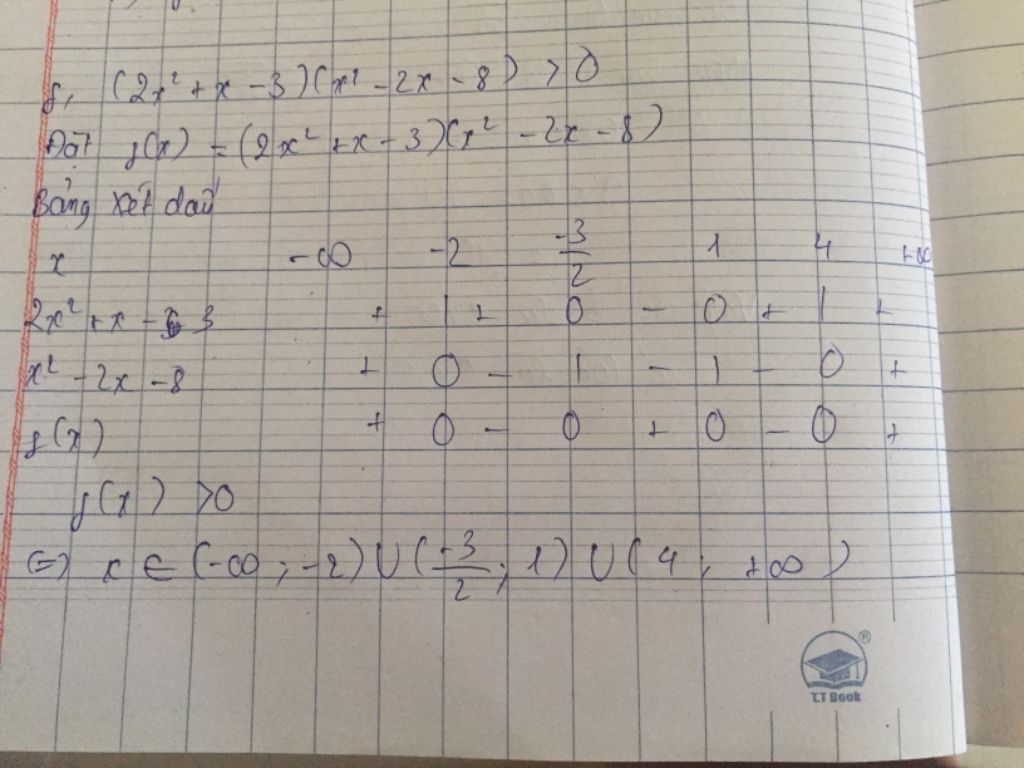 f, (2x² + x - 3)(x² - 2x - 8) > 0
Đặt f(x) = (2x² + x - 3)(x² - 2x - 8)
Bảng xét dấu
x -∞ -2 -3/2 1 4 +∞
2x² + x - 3 + | + 0 - 0 + | +
x² - 2x - 8 + 0 - | - | - 0 +
f(x) + 0 - 0 + 0 - 0 +
f(x) > 0
⇔ x ∈ (-∞; -2) ∪ (-3/2; 1) ∪ (4; +∞)
®
T.T Book